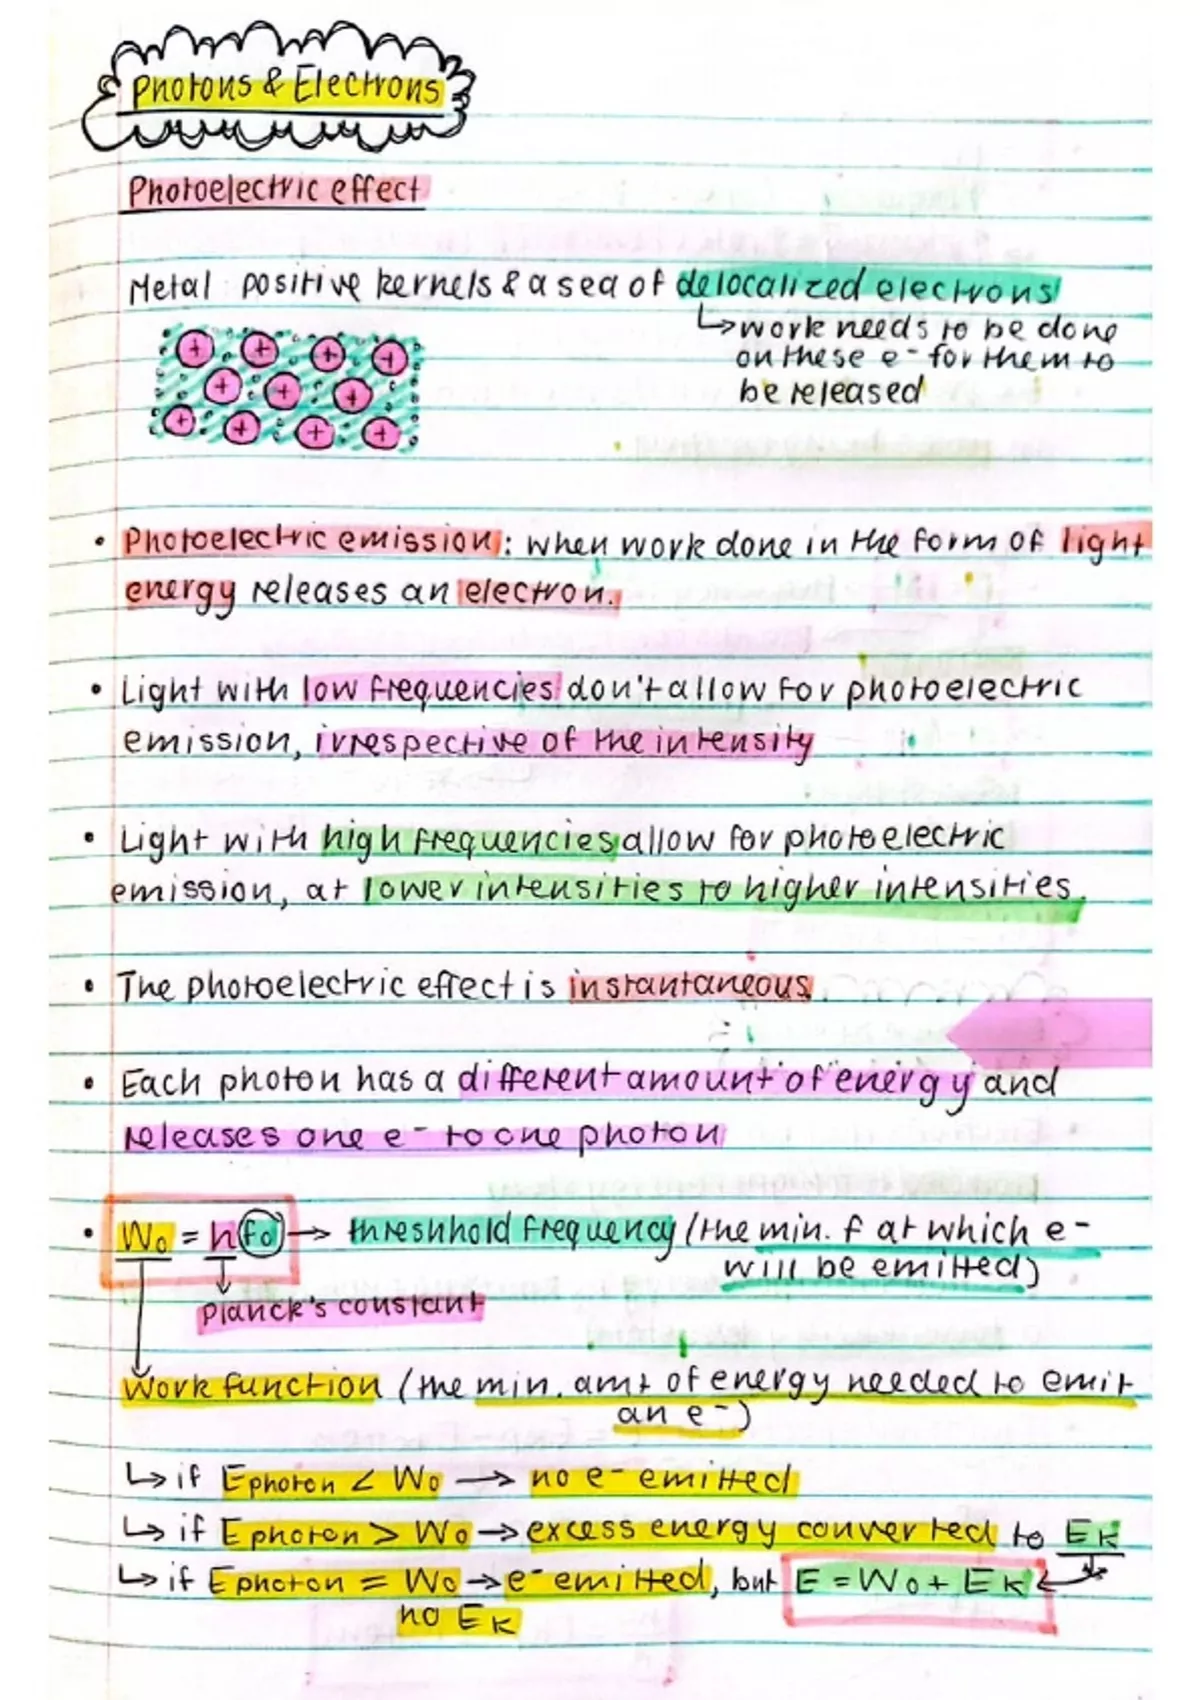 Photons & Electrons
Photoelectric effect
Metal : positive kernels & a sea of delocalized electrons
↳ work needs to be done
on these e- for them to
be released
+ + + +
+ + +
+ + + +
• Photoelectric emission : when work done in the form of light
energy releases an electron.
• Light with low frequencies don't allow for photoelectric
emission, irrespective of the intensity
• Light with high frequencies allow for photoelectric
emission, at lower intensities to higher intensities.
• The photoelectric effect is instantaneous.
• Each photon has a different amount of energy and
releases one e- to one photon
• W₀ = hf₀ → threshhold frequency (the min. f at which e-
will be emitted)
Planck's constant
Work function (the min. amt of energy needed to emit
an e-)
↳ if Ephoton < W₀ → no e- emitted
↳ if Ephoton > W₀ → excess energy converted to EK
↳ if Ephoton = W₀ → e- emitted, but E = W₀ + EK
no EK